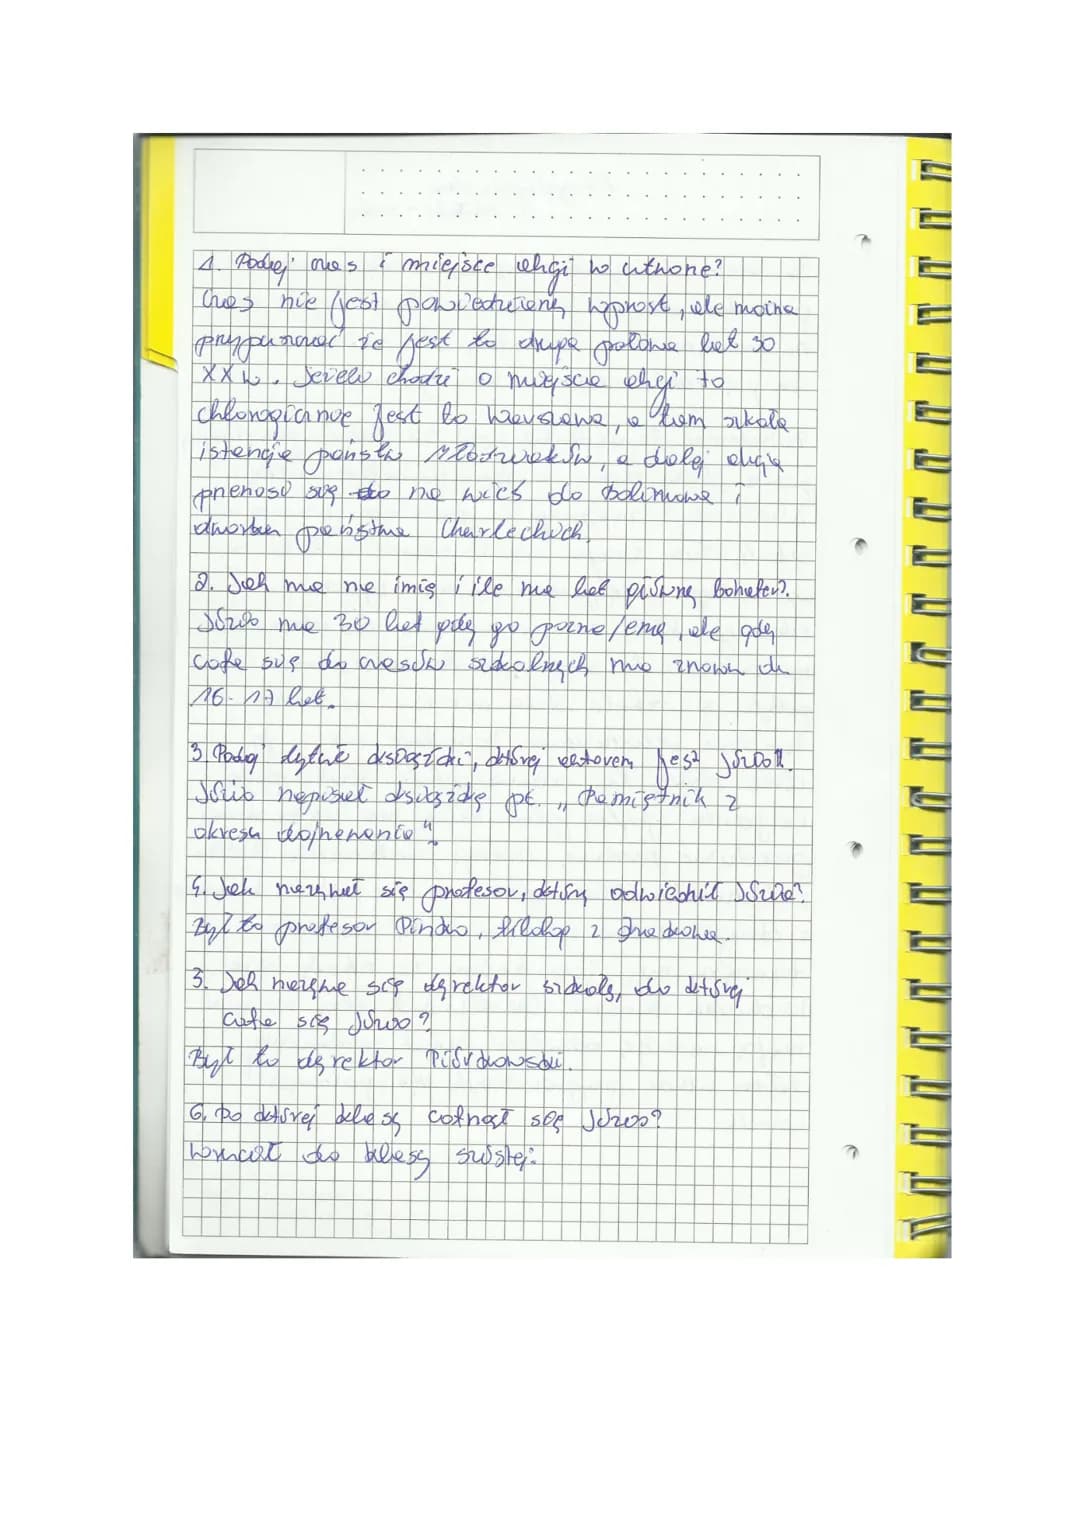 1. Podaj czas i miejsce akcji w utworze?
Czas nie jest powiedziany wprost, ale można
przypuszczać że jest to druga połowa lat 30
XX w. Jeżeli chodzi o miejsce akcji to
jest to Warszawa, a tam szkoła
państwa Młodziaków, a dalej akcja
przenosi się na wieś do Bolimowa i
dworku państwa
2. Jak ma na imię i ile ma lat główny bohater?
Józio ma 30 lat gdy go poznajemy, ale gdy
cofa się do czasów szkolnych ma znowu
16-17 lat.
3. Podaj tytuł książki, której autorem jest Józio?
Józio napisał książkę pt. „Pamiętnik z
okresu dojrzewania"
4. Jak nazywał się profesor, który odwiedził Józia?
Był to profesor Pimko, filolog z
5. Jak nazywa się dyrektor szkoły, do której
cofa się Józio?
Był to dyrektor Piórkowski.
6. Do której klasy cofnął się Józio?
Wrócił do klasy szóstej.